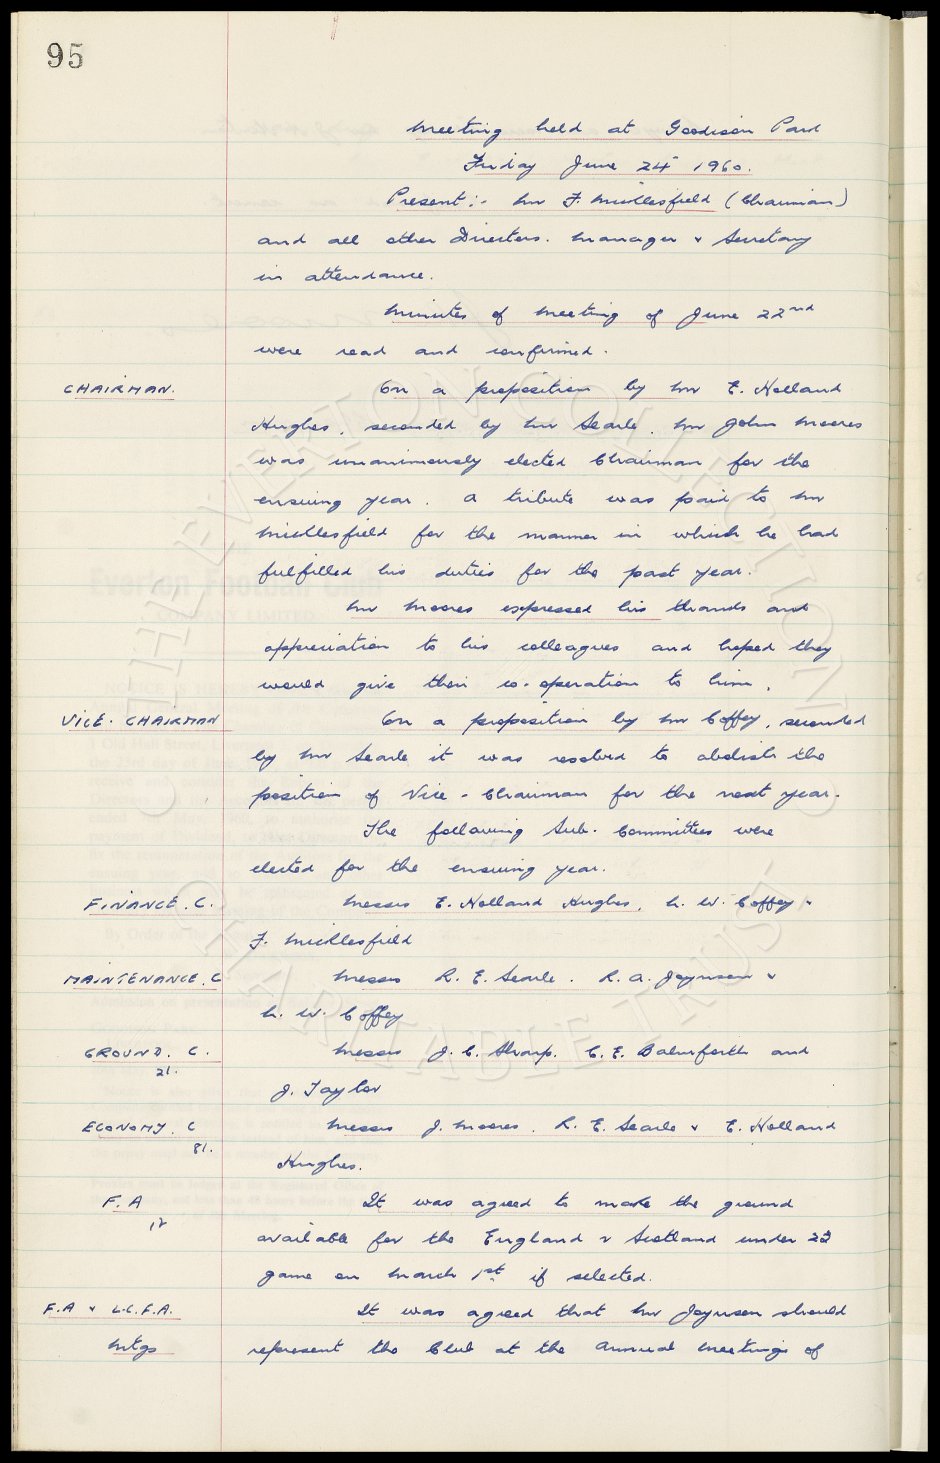 95
Meeting held at Goodison Park
Friday June 24 1960.
Present:- Mr F. Micklesfield (Chairman)
and all other Directors. Manager & Secretary
in attendance.
Minutes of Meeting of June 22nd
were read and confirmed.
CHAIRMAN. On a proposition by Mr E. Holland
Hughes, seconded by Mr Searle, Mr John Moores
was unanimously elected Chairman for the
ensuing year. A tribute was paid to Mr
Micklesfield for the manner in which he had
fulfilled his duties for the past year.
Mr Moores expressed his thanks and
appreciation to his colleagues and hoped they
would give their co-operation to him.
VICE. CHAIRMAN On a proposition by Mr Coffey, seconded
by Mr Searle it was resolved to abolish the
position of Vice-Chairman for the next year.
The following Sub. Committees were
elected for the ensuing year.
FINANCE. C. Messrs E. Holland Hughes, C. W. Coffey &
F. Micklesfield
MAINTENANCE. C Messrs R. E. Searle. R. A. Joynson &
C. W. Coffey
GROUND. C. Messrs J. C. Sharp. C. E. Balmforth and
21.
J. Taylor
ECONOMY. C Messrs J. Moores. R. E. Searle & E. Holland
81.
Hughes.
F.A It was agreed to make the ground
12
available for the England v Scotland under 23
game on March 1st if selected.
F.A & L.C.F.A. It was agreed that Mr Joynson should
Mtgs represent the Club at the Annual Meetings of
THE EVERTON COLLECTION
CHARITABLE TRUST
Everton Football Club